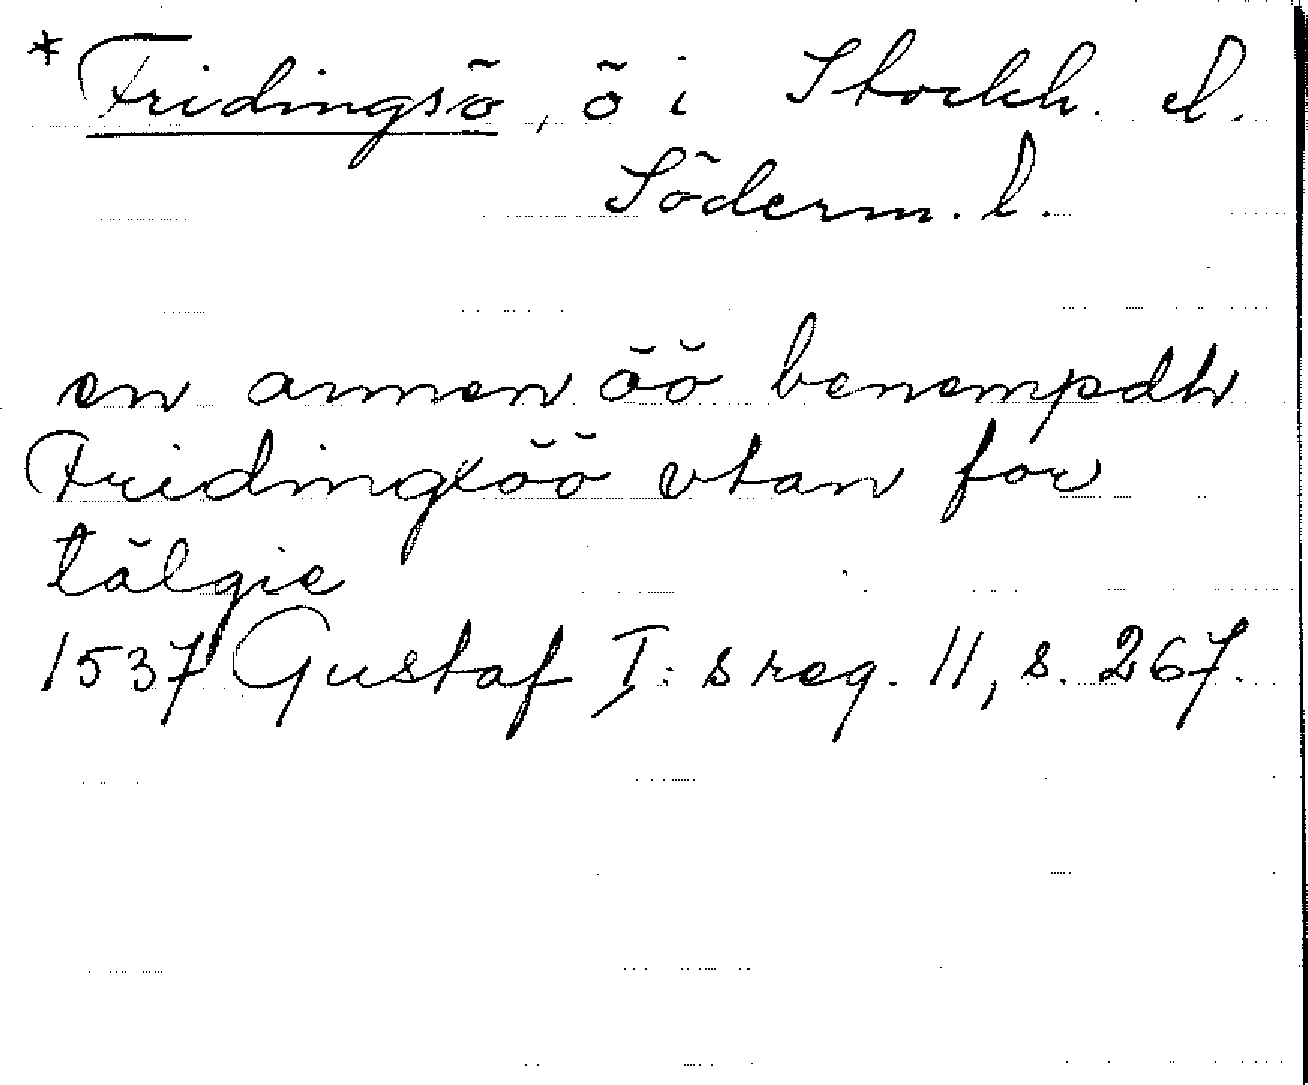 *Fridingsö, ö i Stockh. l.
Söderm. l.
en annen öö benempdh
Fridingxöö vtan for
tälgie
1537 Gustaf I:s reg. 11, s. 267.